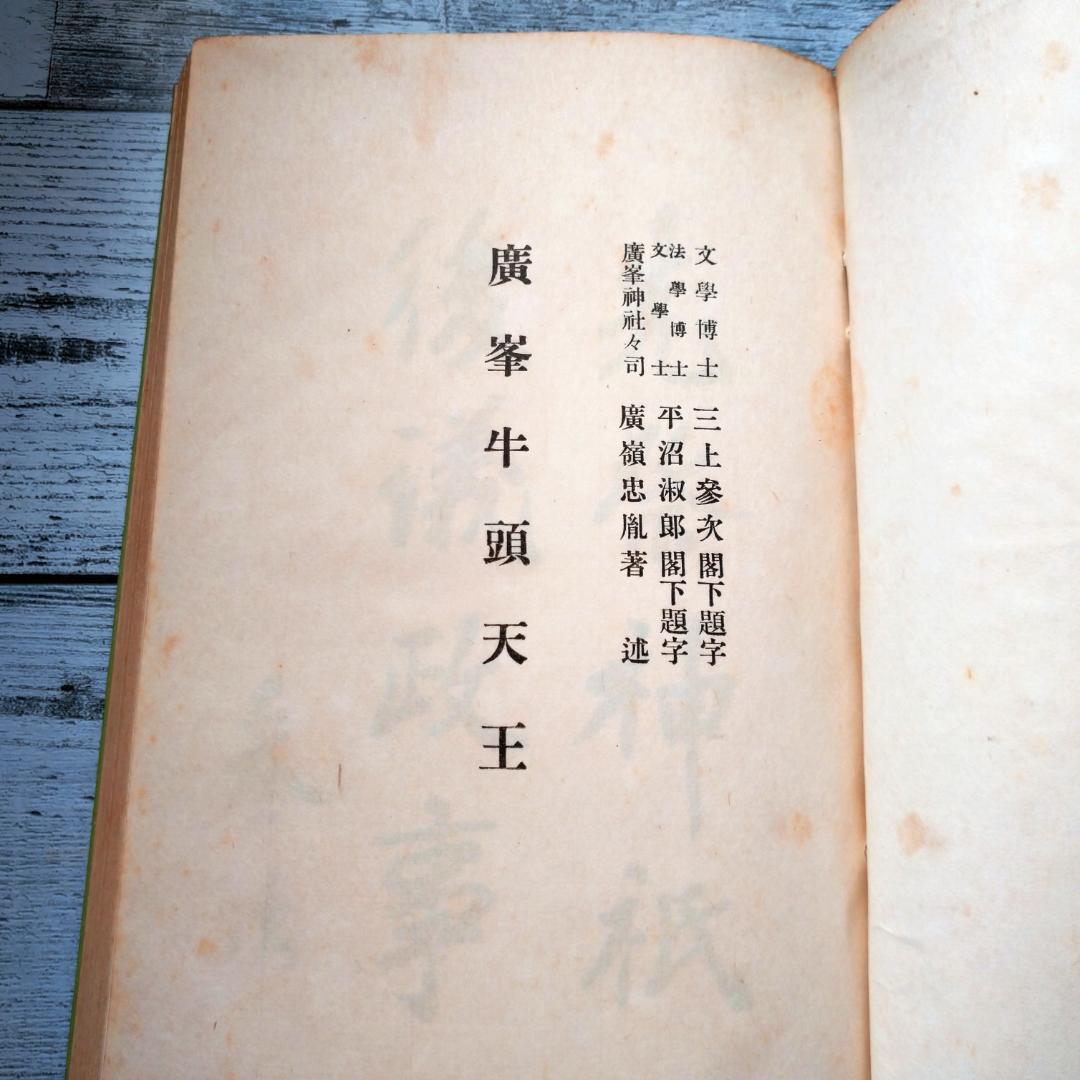 文學博士 三上參次閣下題字
法學博士 文學士 平沼淑郎閣下題字
廣峯神社々司 廣嶺忠胤著述
廣峯牛頭天王
神祇
後儀政事